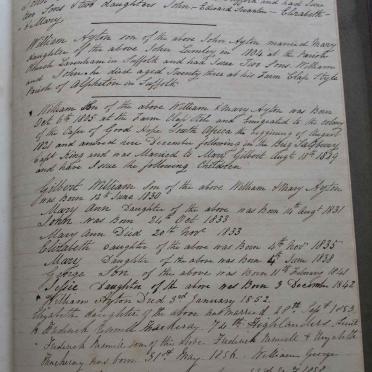 two Sons two daughters John - Edward Swanton - Elizabeth
& Mary.
William Ayton son of the above John Ayton married Mary
daughter of the above John Lumley in 1804 at the Parish
Church Lavenham in Suffolk and had Issue Two Sons William
and John he died aged twenty three at his Farm Clap Style
Parish of Alpheton in Suffolk
William Son of the above William & Mary Ayton was Born
Oct 6th 1805 at the Farm Clap Stile and Emigrated to the colony
of the Cape of Good Hope South Africa the beginning of August
1821 and arrived in December following in the Brig Salsbury
Capt King and was Married to Mary Gilbert Augt 18th 1829
and have Issue the following Children
Gilbert William Son of the above William & Mary Ayton
Was Born 12th June 1830
Mary Ann Daughter of the above was Born 14th Augt 1831
John was Born 24th Oct 1833
Mary Ann Died 20th Novr 1833
Elizabeth Daughter of the above was Born 4th Novr 1835
Mary Daughter of the above was Born 4th June 1838
George Son of the above was Born 11th February 1841
Jessie Daughter of the above was Born 3 December 1842
William Ayton Died 3rd January 1852.
Elizabeth daughter of the above was married 28th Sept 1853
to Frederick 74th Highlanders
Frederick son of the above Frederick & Elizabeth
was born 31st May 1856. William George
1858